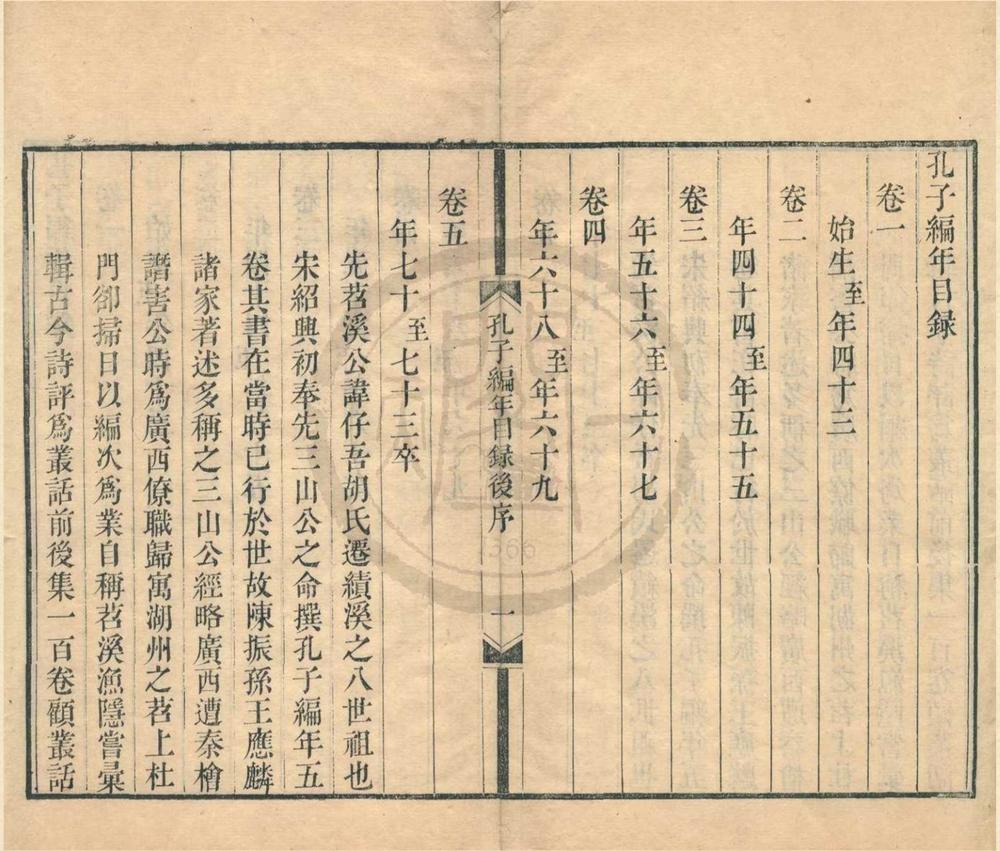 孔子編年目録
卷一
始生至年四十三
卷二
年四十四至年五十五
卷三
年五十六至年六十七
卷四
年六十八至年六十九
孔子編年目録後序
一
卷五
年七十至七十三卒
先苕溪公諱仔吾胡氏遷績溪之八世祖也
宋紹興初奉先三山公之命撰孔子編年五
卷其書在當時已行於世故陳振孫王應麟
諸家著述多稱之三山公經略廣西遭秦檜
譖害公時爲廣西僚職歸寓湖州之苕上杜
門卻掃日以編次爲業自稱苕溪漁隱嘗彙
輯古今詩評爲叢話前後集一百卷顧叢話